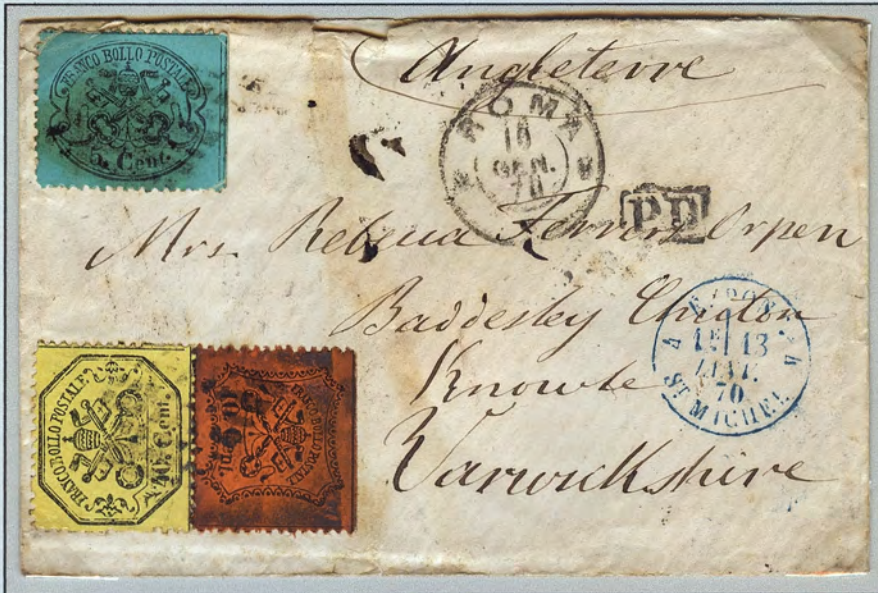 FRANCO BOLLO POSTALE
5 Cent.
Angleterre
ROMA
GEN.
70
PD
Mrs. Rebecca Ferrers Orpen
Baddesley Clinton
Knowle
Warwickshire
13
70
ST MICHEL
4 4
FRANCO BOLLO POSTALE
40 Cent.
FRANCO BOLLO POSTALE
10